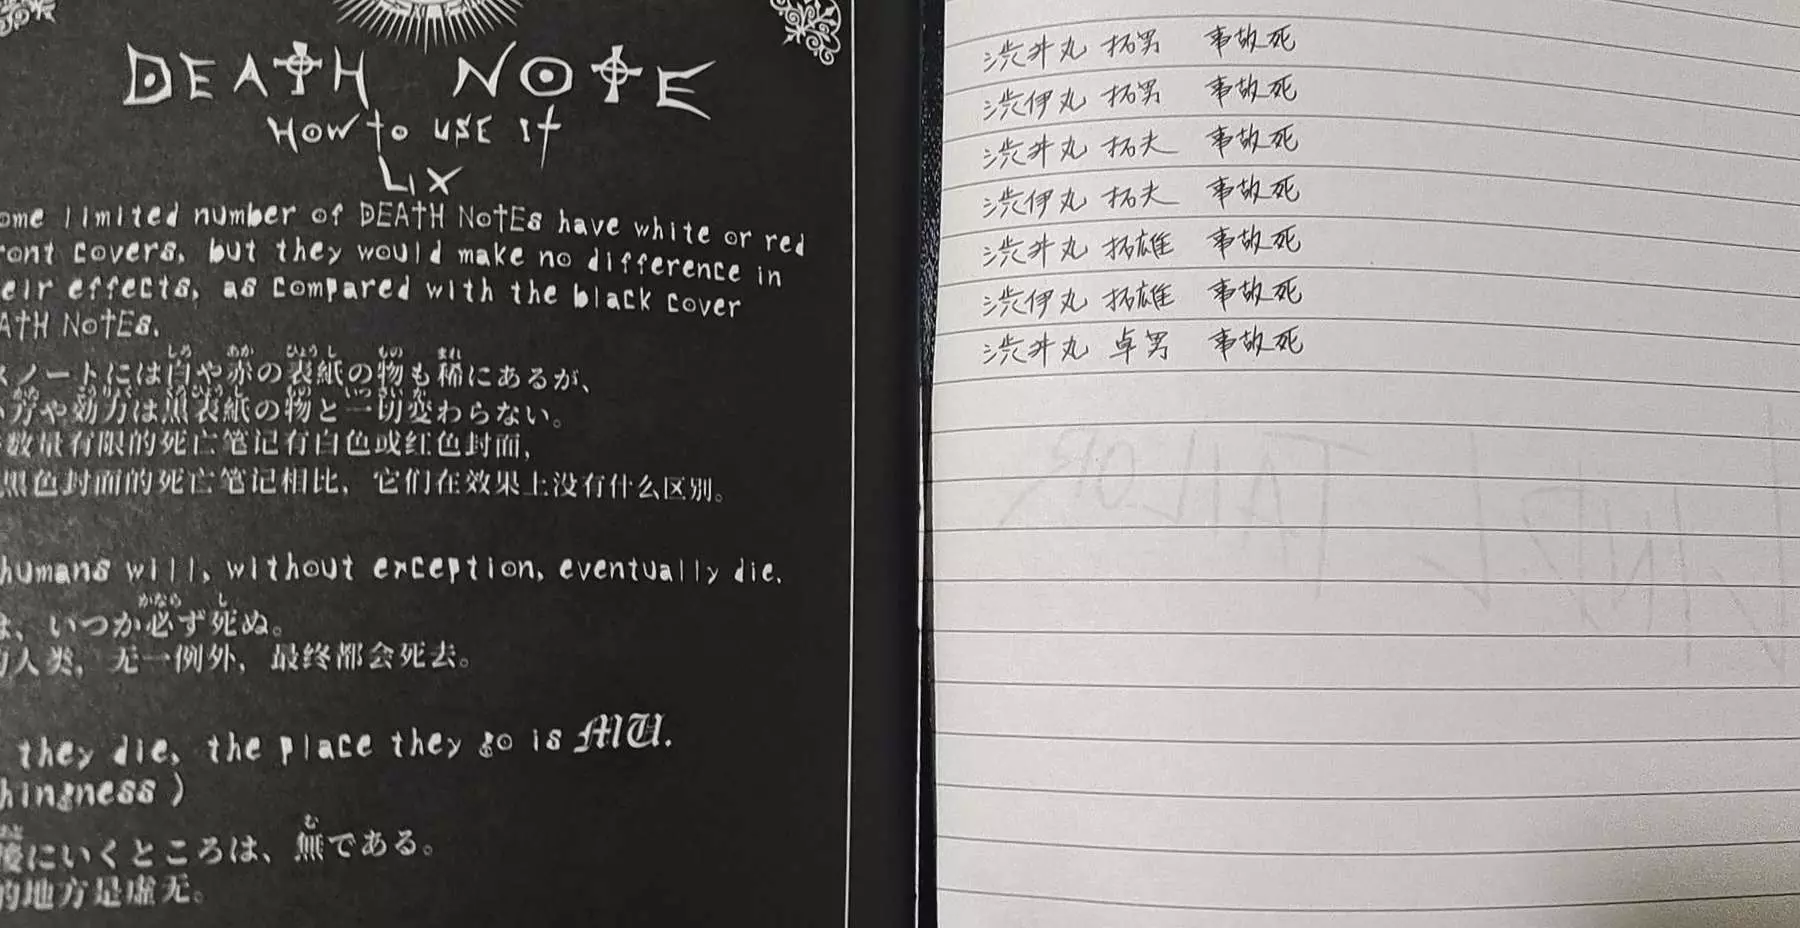 DEATH NOTE
How to use it
LIX
ome limited number of DEATH NOTEs have white or red
ront covers, but they would make no difference in
eir effects, as compared with the black cover
ATH NOTEs.
しろ あか ひょうし もの まれ
スノートには白や赤の表紙の物も稀にあるが、
い方や効力は黒表紙の物と一切変わらない。
数量有限的死亡笔记有白色或红色封面，
黑色封面的死亡笔记相比，它们在效果上没有什么区别。
humans will, without exception, eventually die.
かなら し
は、いつか必ず死ぬ。
的人类，无一例外，最终都会死去。
they die, the place they go is MU.
hingness)
む
後にいくところは、無である。
的地方是虚无。
渋井丸 拓男 事故死
渋伊丸 拓男 事故死
渋井丸 拓夫 事故死
渋伊丸 拓夫 事故死
渋井丸 拓雄 事故死
渋伊丸 拓雄 事故死
渋井丸 卓男 事故死
TAILOR